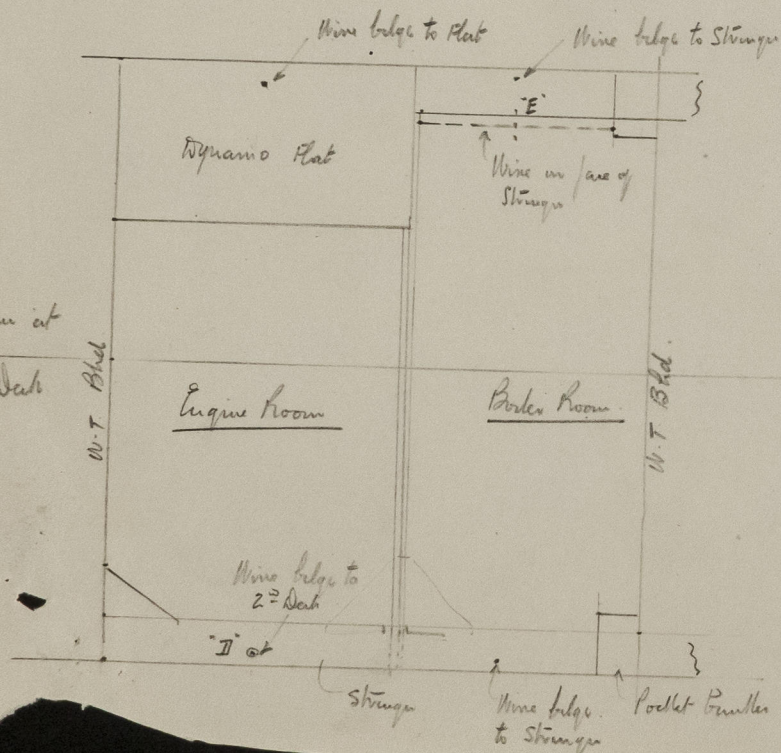 Wire bilge to Flat
Wire bilge to Stringer
"E"
Dynamo Flat
Wire on face of
Stringer
at
Deck
W.T Bhd
Engine Room
Boiler Room
W.T Bhd.
Wire bilge to
2nd Deck
"D"
Stringer
Wire bilge
to Stringer
Pocket Bunker